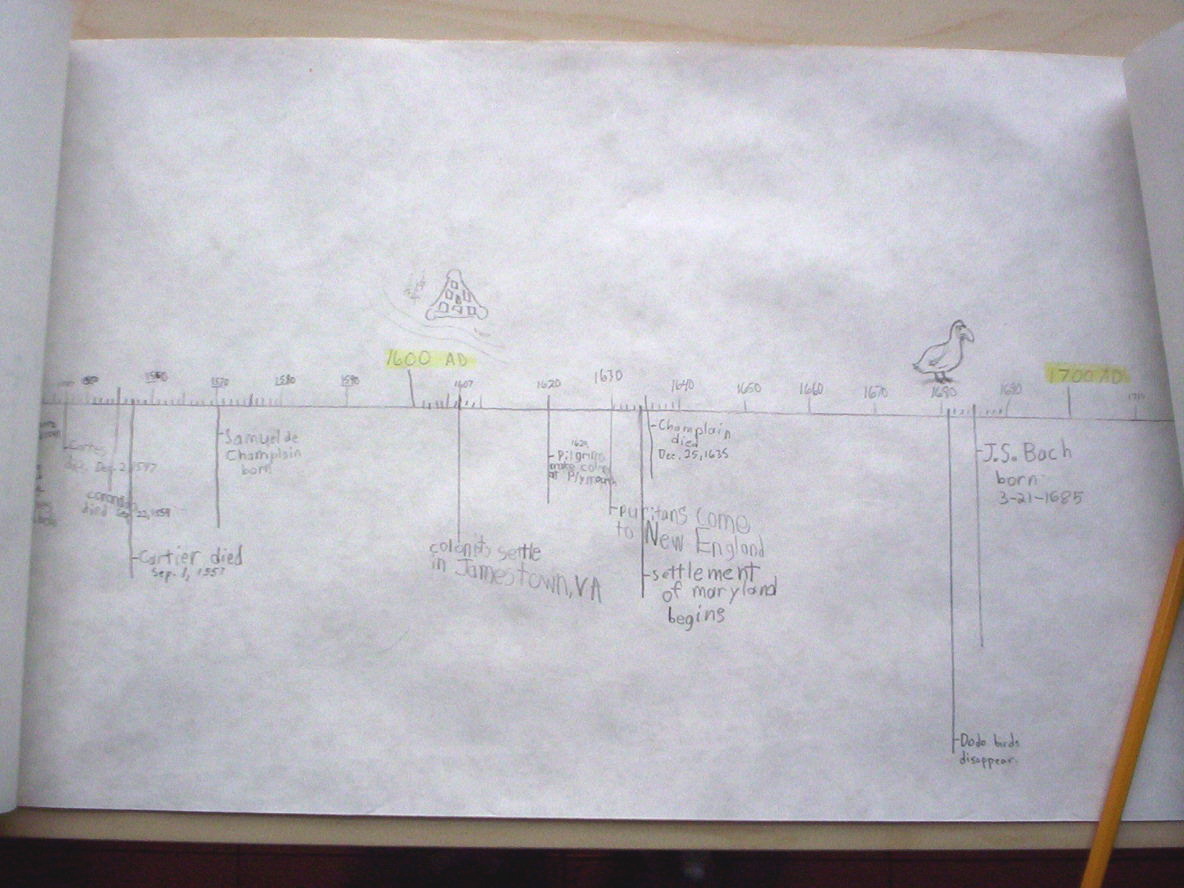 1600 AD
1700 AD
1560
1570
1580
1590
1607
1620
1630
1640
1650
1660
1670
1680
1690
1710
Cortes
died Dec. 2, 1547
died Sep. 22, 1554
Cartier died
Sep. 1, 1557
Samuel de
Champlain
born
colonists settle
in Jamestown, VA
1620
Pilgrims
make colony
at Plymouth
Puritans come
to New England
settlement
of maryland
begins
Champlain
died
Dec. 25, 1635
J.S. Bach
born
3-21-1685
Dodo birds
disappear.